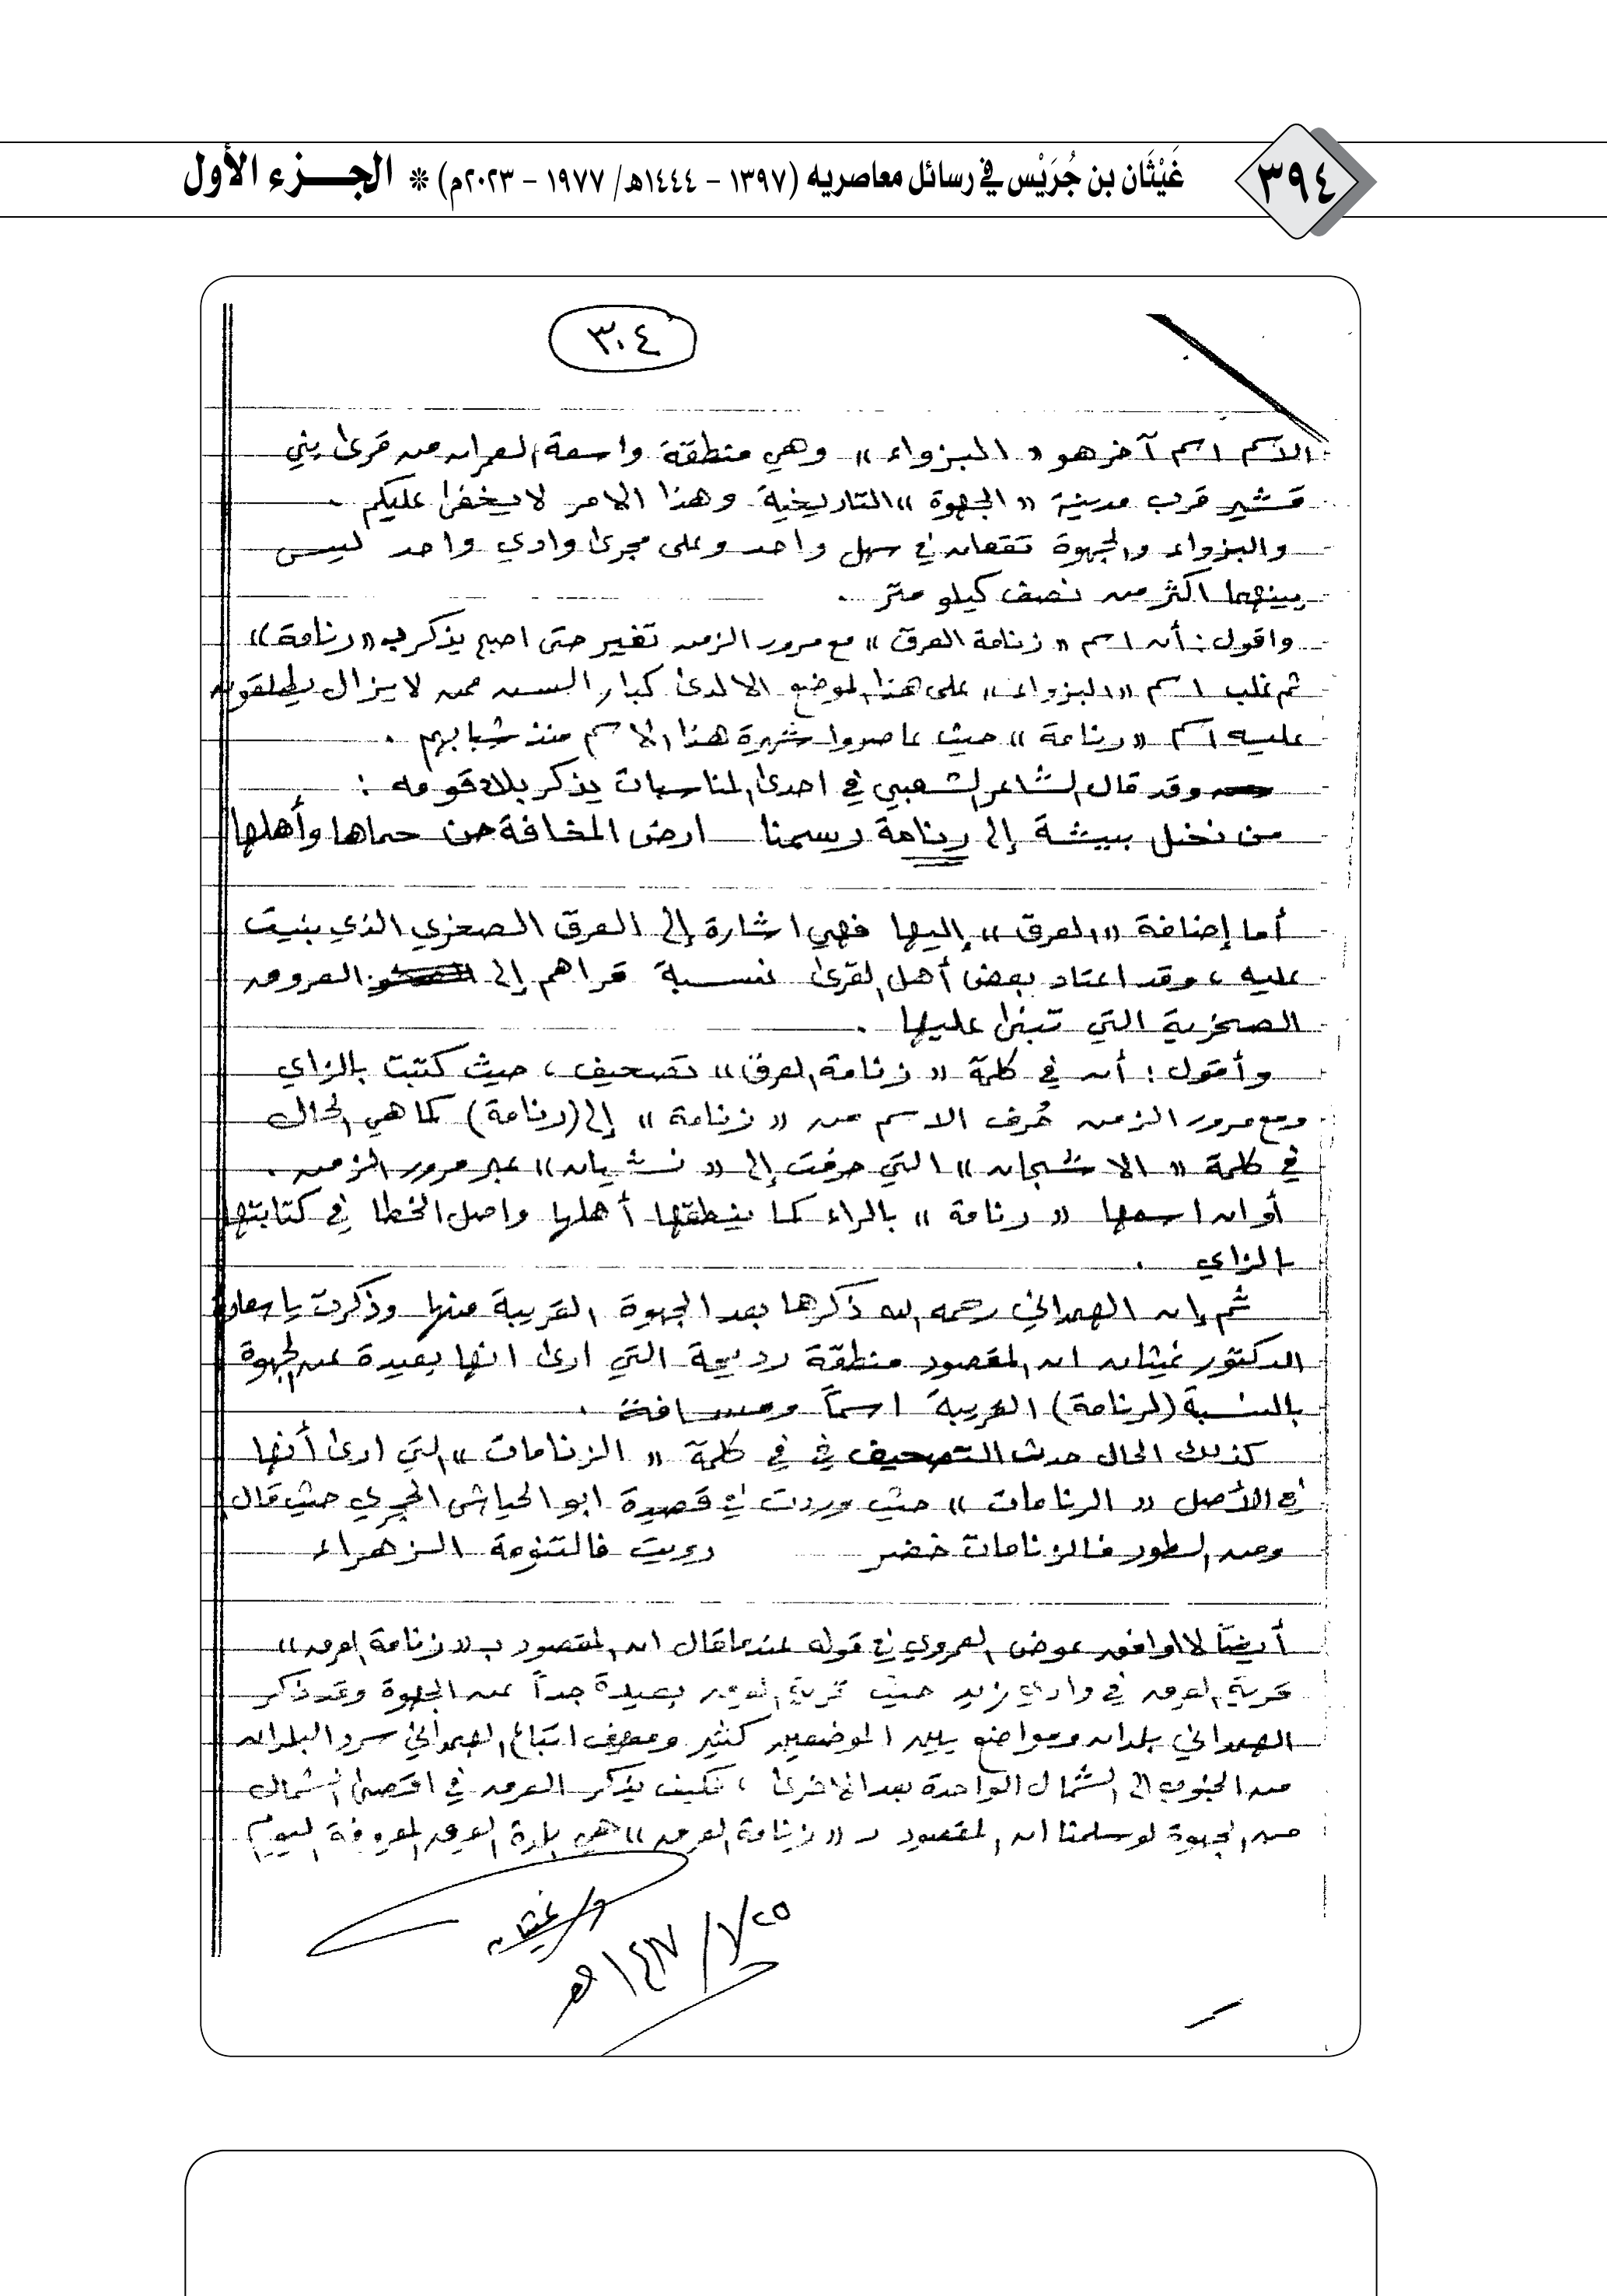 ٣٩٤
غَيْثَان بن جُرَيْس في رسائل معاصريه (١٣٩٧ - ١٤٤٤هـ/ ١٩٧٧ - ٢٠٢٣م) * الجـــزء الأول
٣٠٤
الاسم اسم آخر هو « البزواء » وهي منطقة واسعة العمران من قرى بني
قشير قرب مدينة « الجهوة » التاريخية وهذا الامر لا يخفى عليكم .
والبزواء والجهوة تقعان في سهل واحد وعلى مجرى وادي واحد ليس
بينهما اكثر من نصف كيلو متر .
واقول : أن اسم « زنامة العرق » مع مرور الزمن تغير حتى اصبح يذكر ب « رنامة »
ثم غلب اسم « البزواء » على هذا الموضع الا لدى كبار السن ممن لا يزال يطلقون
عليه اسم « رنامة » حيث عاصروا شهرة هذا الاسم منذ شبابهم .
وقد قال الشاعر الشعبي في احدى المناسبات يذكر بلاد قومه :
من نخل بيشة إلى رنامة رسمنا ارض المخافة من حماها وأهلها
أما إضافة « العرق » إليها فهي اشارة إلى العرق الصخري الذي بنيت
عليه ، وقد اعتاد بعض أهل القرى نسبة قراهم إلى العروق
الصخرية التي تبنى عليها .
وأقول : أن في كلمة « زنامة العرق » تصحيف ، حيث كتبت بالزاي
ومع مرور الزمن حُرف الاسم من « زنامة » إلى (رنامة) كما هي الحال
في كلمة « الاشجان » التي حرفت إلى « نشيان » عبر مرور الزمن .
أو ان اسمها « رنامة » بالراء كما ينطقها أهلها واصل الخطا في كتابتها
بالزاي .
ثم إن الهمداني رحمه الله ذكرها بعد الجهوة القريبة منها وذكرت يا سعادة
الدكتور غيثان ان المقصود منطقة رديحة التي ارى انها بعيدة عن الجهوة
بالنسبة (لرنامة) القريبة اسماً ومسافة .
كذلك الحال حدث التصحيف في في كلمة « الزنامات » التي ارى أنها
في الأصل « الرنامات » حيث وردت في قصيدة ابو الحياش الحجري حيث قال
ومن الطور فالزنامات خضر رويت فالتنومة الزهراء
أيضاً لا اوافق عوض العمروي في قوله عندما قال ان المقصود ب « زنامة العرق »
قرية العرق في وادي زيد حيث قرية العرق بعيدة جداً عن الجهوة وقد ذكر
الهمداني بلدان ومواضع بين الموضعين كثير ومعروف اتباع الهمداني سرد البلدان
من الجنوب الى الشمال الواحدة بعد الاخرى ، فكيف يذكر العرق في اقصى الشمال
من الجهوة لو سلمنا ان المقصود ب « زنامة العرق » هي بلدة العرق المعروفة اليوم
د/ غيثان
٢٥/ ٧/ ١٤١٧هـ